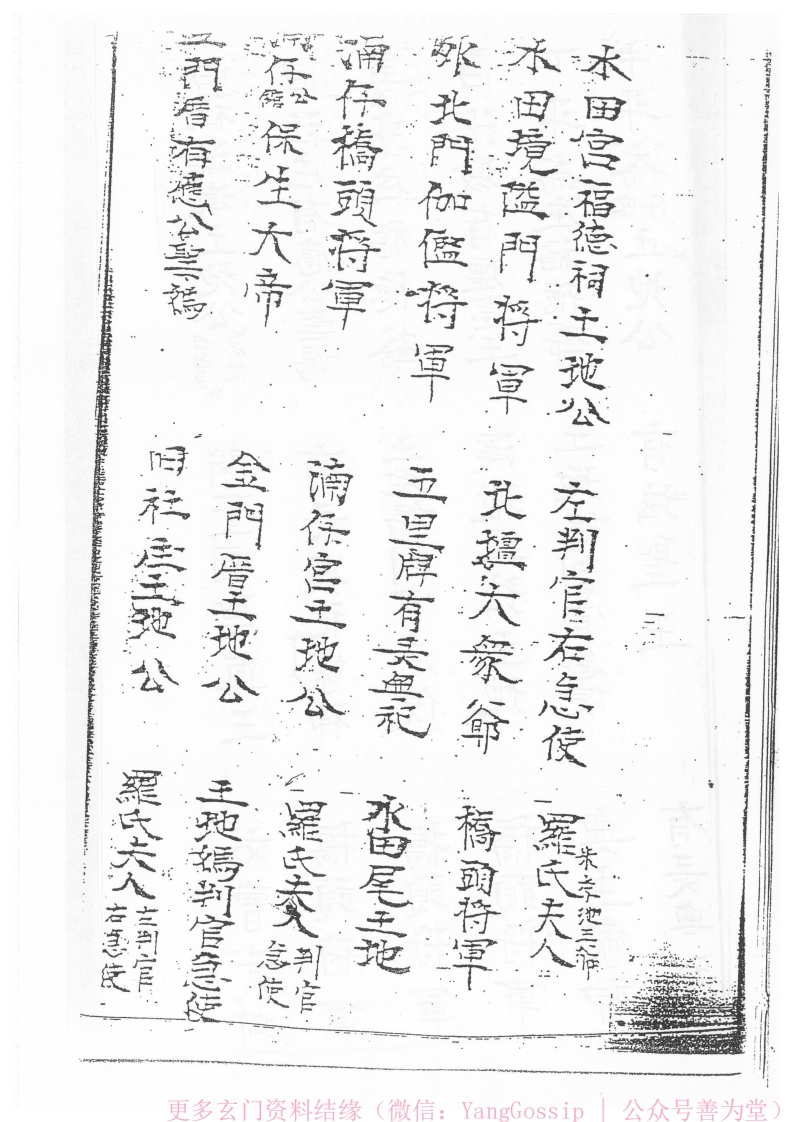 水田宮福德祠土地公
左判官右急使
羅氏夫人
水田境隘門將軍
北壇大眾爺
橋頭將軍
外北門伽儖將軍
五里牌有
祀
水田尾土地
湳仔橋頭將軍
湳仔宮土地公
羅氏夫人 判官 急使
仔 公館 保生大帝
金門厝土地公
土地媽判官急使
門厝有應公聖媽
旧社庄土地公
羅氏夫人 左判官 右急使
更多玄门资料结缘（微信：YangGossip | 公众号善为堂）